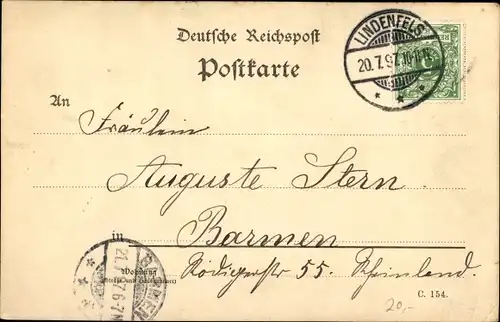 Deutsche Reichspost
Postkarte
LINDENFELS
20.7.97.10-11.V.
An
Fräulein
Auguste Stern.
in Barmen
Wohnung
(Straße und Hausnummer)
Rödigerstr 55. Rheinland.
BARMEN
21.7.97.6-7N
C. 154.
20,-